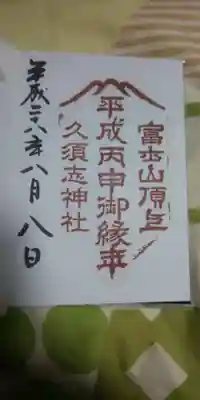 富士山頂上
平成丙申御縁年
久須志神社
平成二十八年八月八日